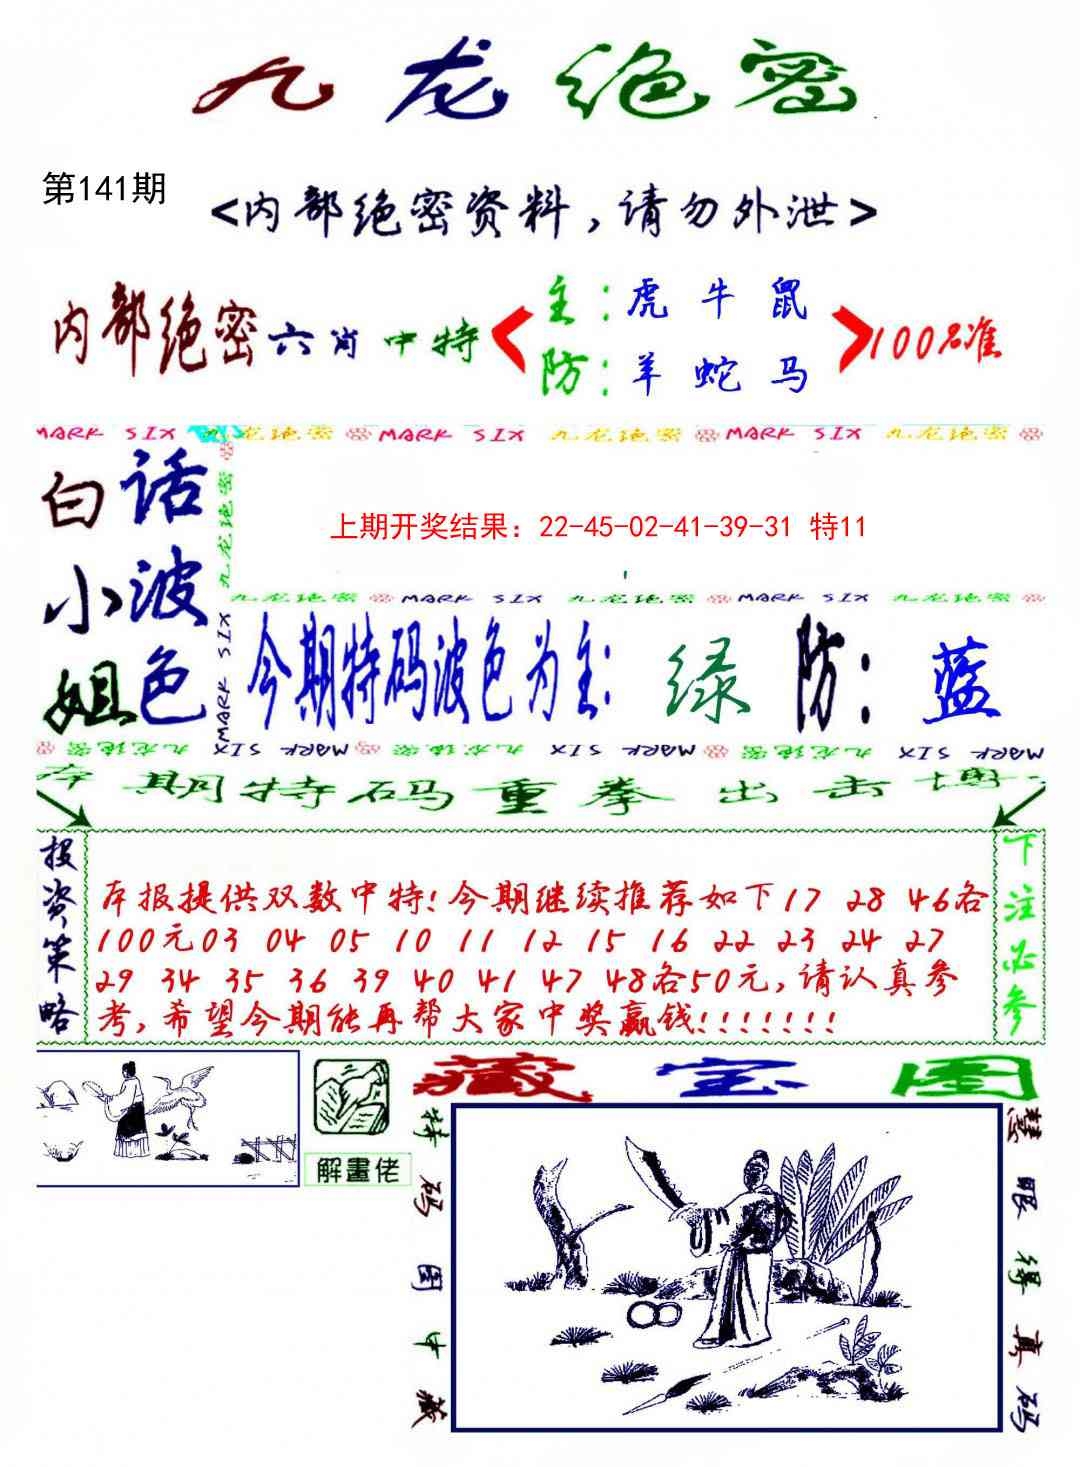 九龙绝密
第141期
<内部绝密资料，请勿外泄>
内部绝密六肖中特
主：虎 牛 鼠
防：羊 蛇 马
100%准
MARK SIX 九龙绝密 MARK SIX 九龙绝密 MARK SIX 九龙绝密
白小姐
话波色
九龙绝密
MARK SIX
上期开奖结果：22-45-02-41-39-31 特11
九龙绝密 MARK SIX 九龙绝密 MARK SIX 九龙绝密
今期特码波色为主：绿 防：蓝
九龙绝密 MARK SIX 九龙绝密 MARK SIX 九龙绝密 MARK SIX
本期特码重拳出击博
投资策略
本报提供双数中特!今期继续推荐如下17 28 46各
100元03 04 05 10 11 12 15 16 22 23 24 27
29 34 35 36 39 40 41 47 48各50元,请认真参
考,希望今期能再帮大家中奖赢钱!!!!!!!
下注必参
解畫佬
藏宝图
特码图中藏
慧眼得真码